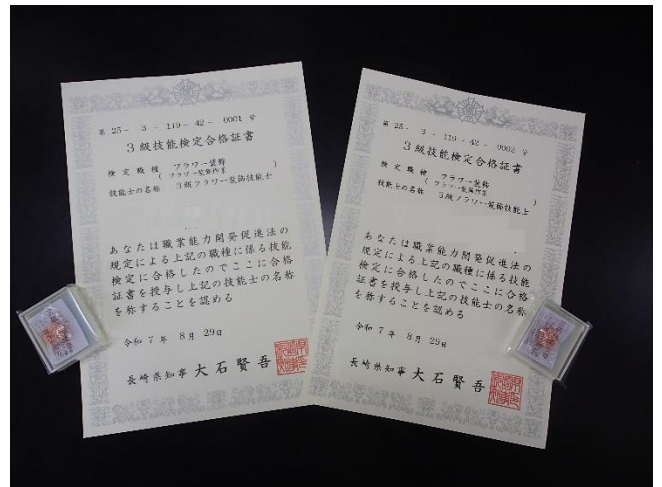 第 25 - 3 - 119 - 42 - 0001 号
3級技能検定合格証書
検定職種 フラワー装飾
( フラワー装飾作業 )
技能士の名称 3級フラワー装飾技能士
あなたは職業能力開発促進法の
規定による上記の職種に係る技能
検定に合格したのでここに合格
証書を授与し上記の技能士の名称
を称することを認める
令和7年 8月 29日
長崎県知事 大石賢吾
第 25 - 3 - 119 - 42 - 0002 号
3級技能検定合格証書
検定職種 フラワー装飾
( フラワー装飾作業 )
技能士の名称 3級フラワー装飾技能士
あなたは職業能力開発促進法の
規定による上記の職種に係る技能
検定に合格したのでここに合格
証書を授与し上記の技能士の名称
を称することを認める
令和7年 8月 29日
長崎県知事 大石賢吾